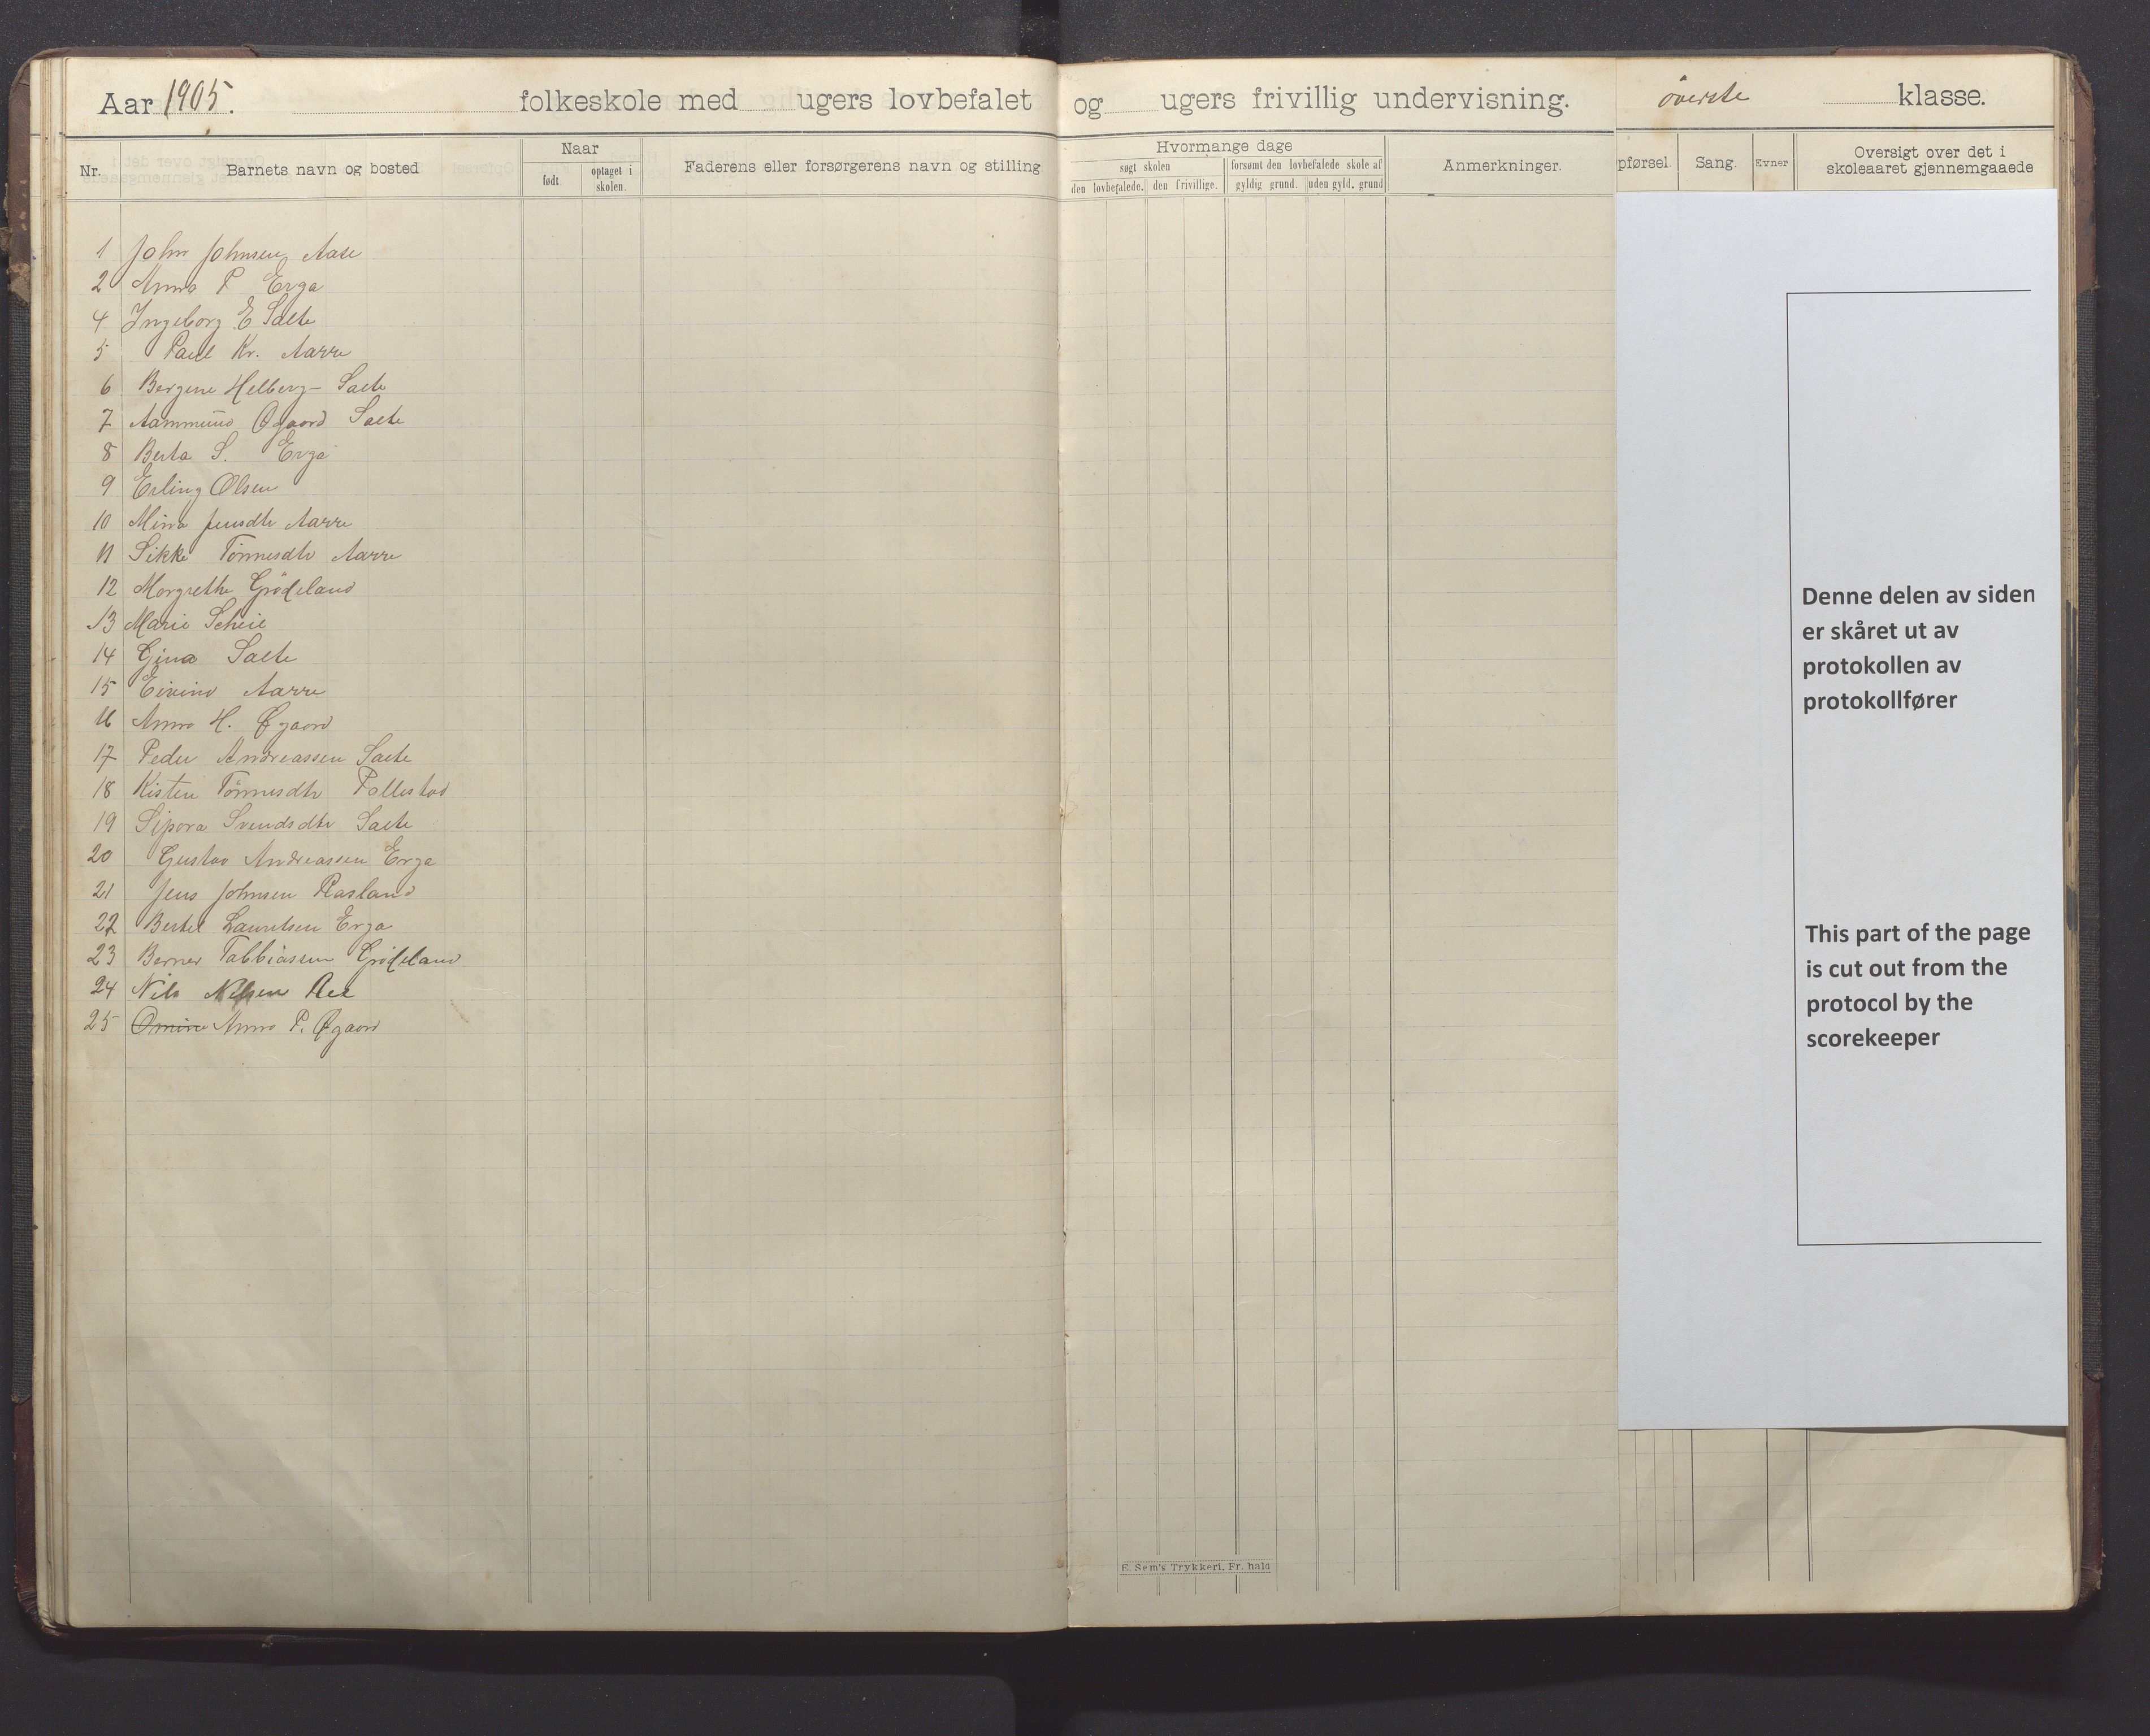 Aar 1905. folkeskole med ugers lovbefalet og ugers frivillig undervisning. øverste klasse.
Nr. Barnets navn og bosted Naar født. optaget i skolen. Faderens eller forsørgerens navn og stilling
Hvormange dage
søgt skolen
den lovbefalede. den frivillige.
forsømt den lovbefalede skole af
gyldig grund. uden gyld. grund
Anmerkninger.
pførsel. Sang. Evner
Oversigt over det i
skoleaaret gjennemgaaede
1 John Johnsen Aase
2 Anna P Erga
4 Ingeborg E Salte
5 Paul Kr. Aarre
6 Bergine Helberg - Salte
7 Aammund Øgaard Salte
8 Berta S. Erga
9 Erling Olsen
10 Mina Jensdtr Aarre
11 Sikke Tönnesdtr Aarre
12 Margrethe Grödeland
13 Marie Scheie
14 Gina Salte
15 Eivind Aarre
16 Anna H. Øgaard
17 Peder Andreassen Salte
18 Kisten Tönnesdtr Pollestad
19 Sipora Svendsdtr Salte
20 Gustav Andreassen Erga
21 Jens Johnsen Rasland
22 Bertel Lauritsen Erga
23 Berner Tabbiassen Grödeland
24 Nils Nilsen Ree
25 Anna P. Øgaard
E. Sem's Trykkeri, Fr. hald
Denne delen av siden
er skåret ut av
protokollen av
protokollfører
This part of the page
is cut out from the
protocol by the
scorekeeper